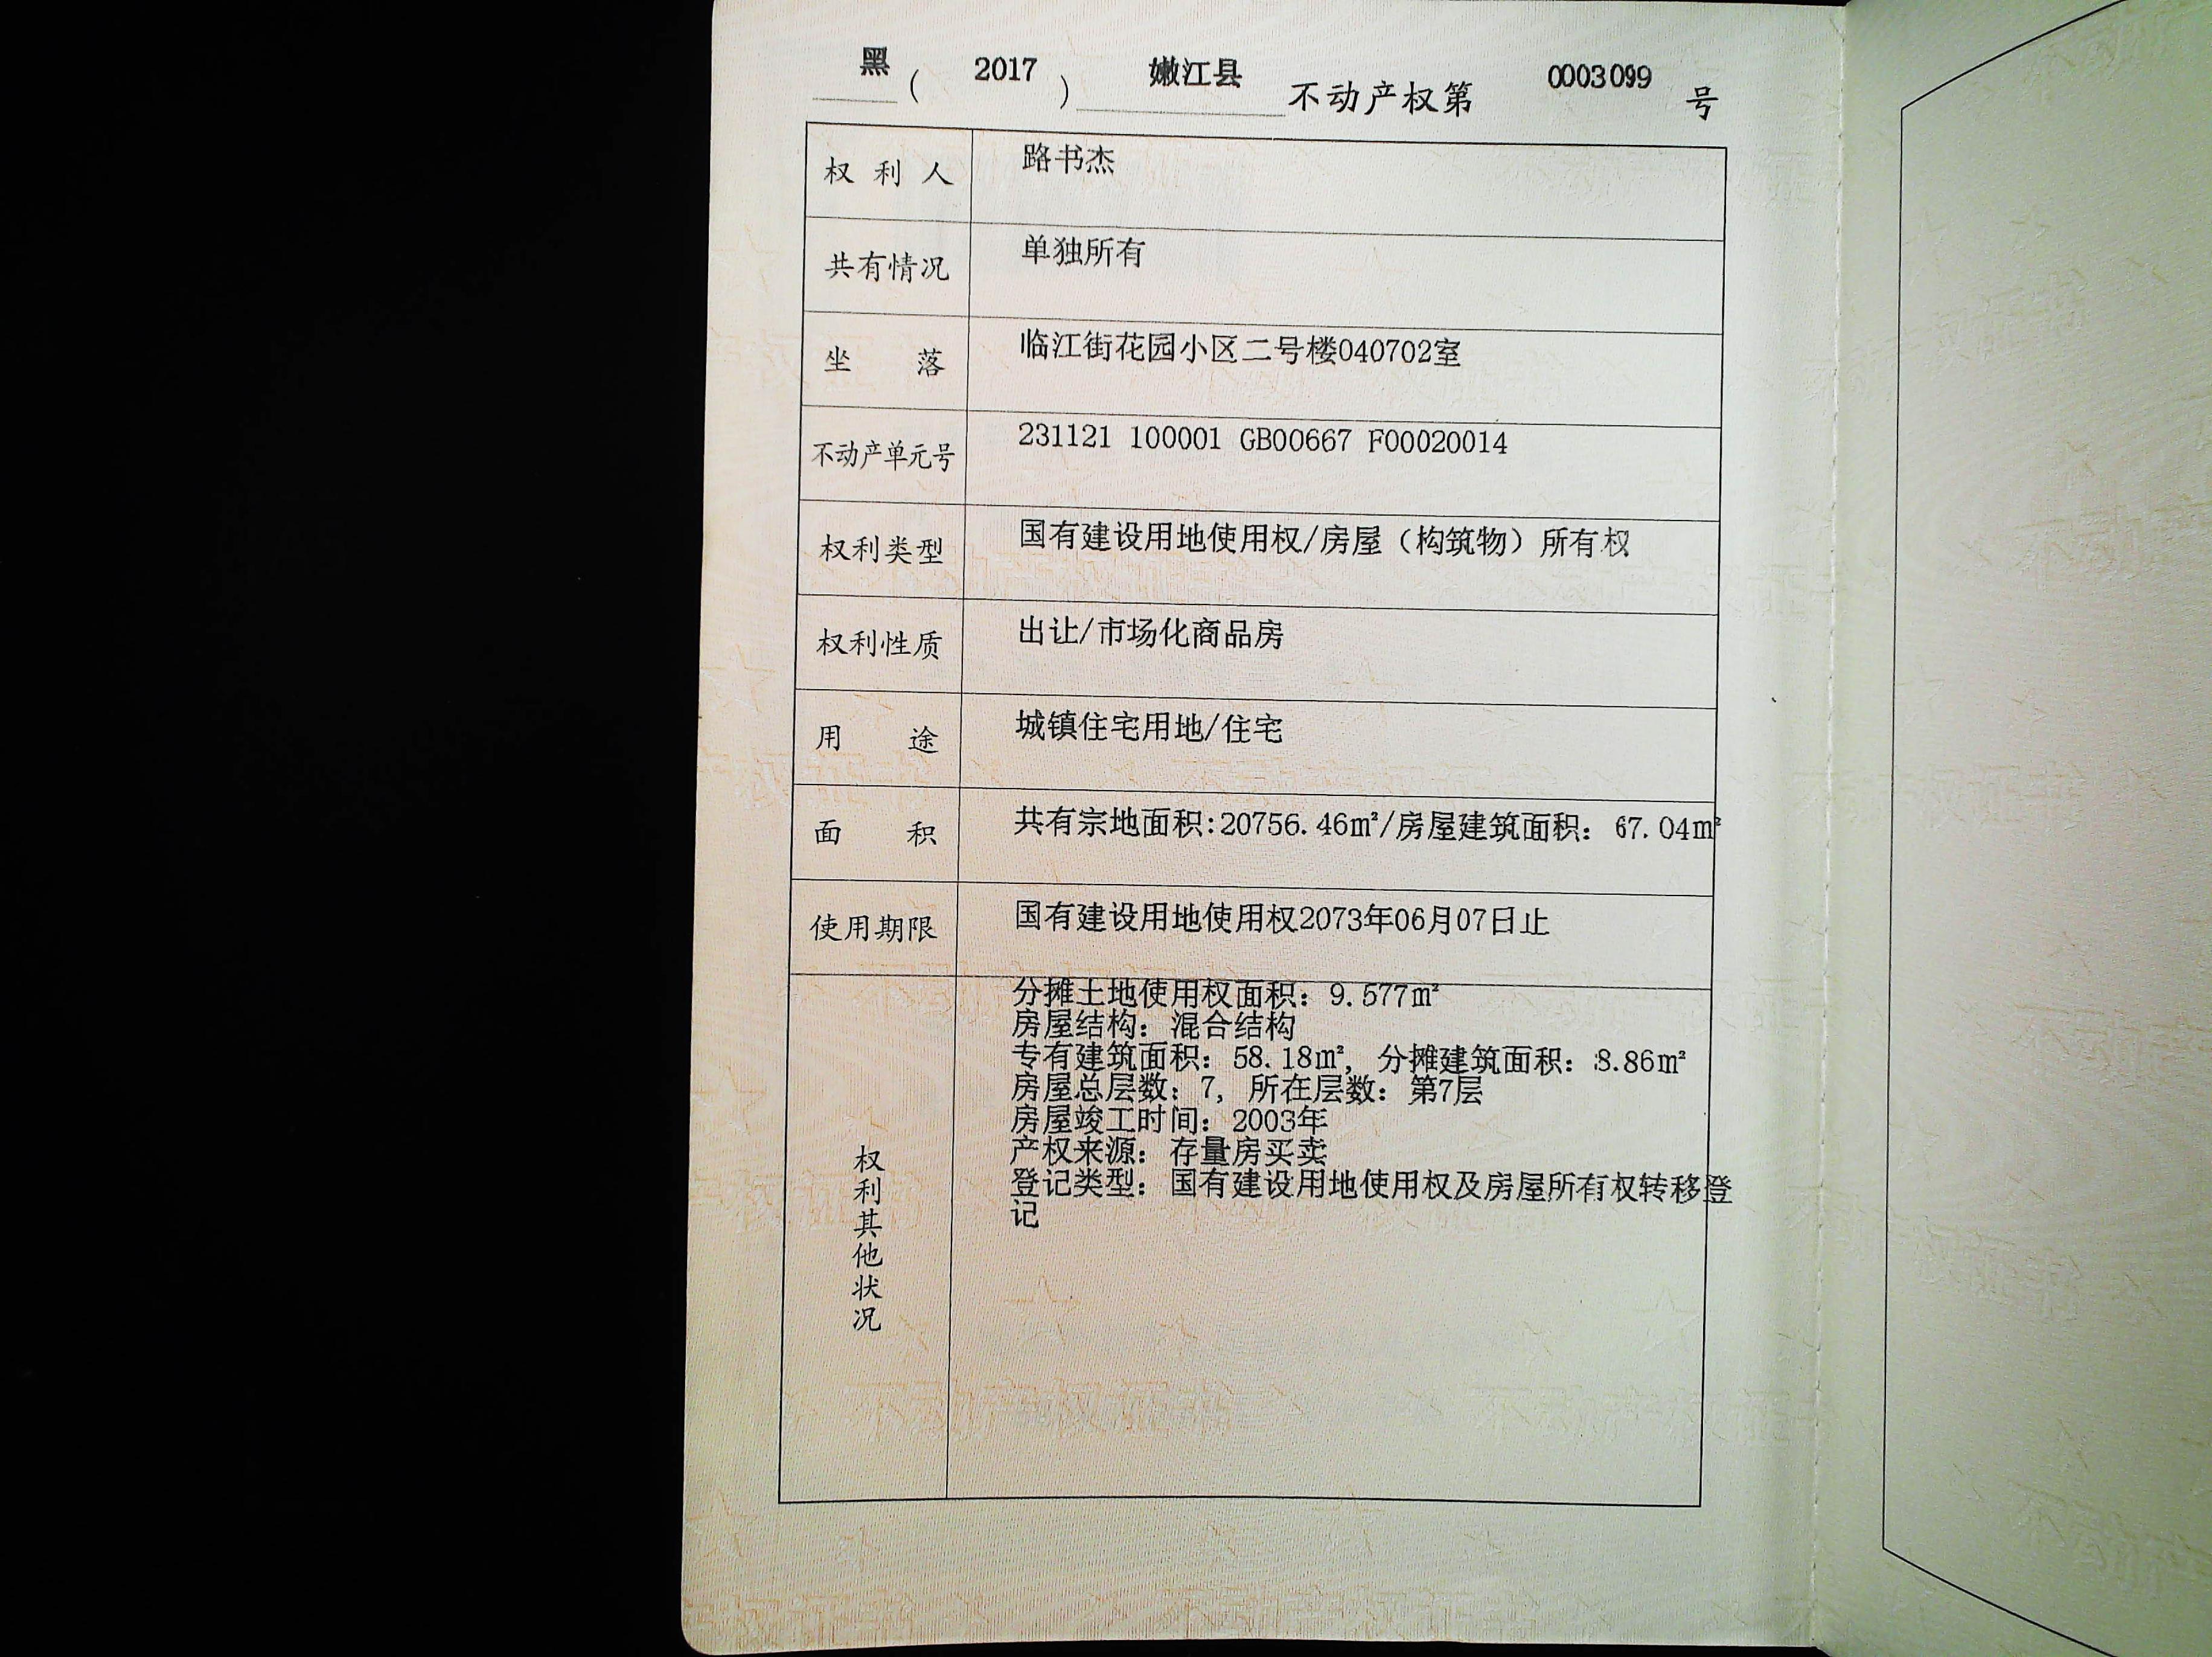 黑（ 2017 ）嫩江县 不动产权第 0003099 号
权利人 路书杰
共有情况 单独所有
坐落 临江街花园小区二号楼040702室
不动产单元号 231121 100001 GB00667 F00020014
权利类型 国有建设用地使用权/房屋（构筑物）所有权
权利性质 出让/市场化商品房
用途 城镇住宅用地/住宅
面积 共有宗地面积:20756.46m²/房屋建筑面积：67.04m²
使用期限 国有建设用地使用权2073年06月07日止
权利其他状况
分摊土地使用权面积：9.577m²
房屋结构：混合结构
专有建筑面积：58.18m²，分摊建筑面积：8.86m²
房屋总层数：7，所在层数：第7层
房屋竣工时间：2003年
产权来源：存量房买卖
登记类型：国有建设用地使用权及房屋所有权转移登
记